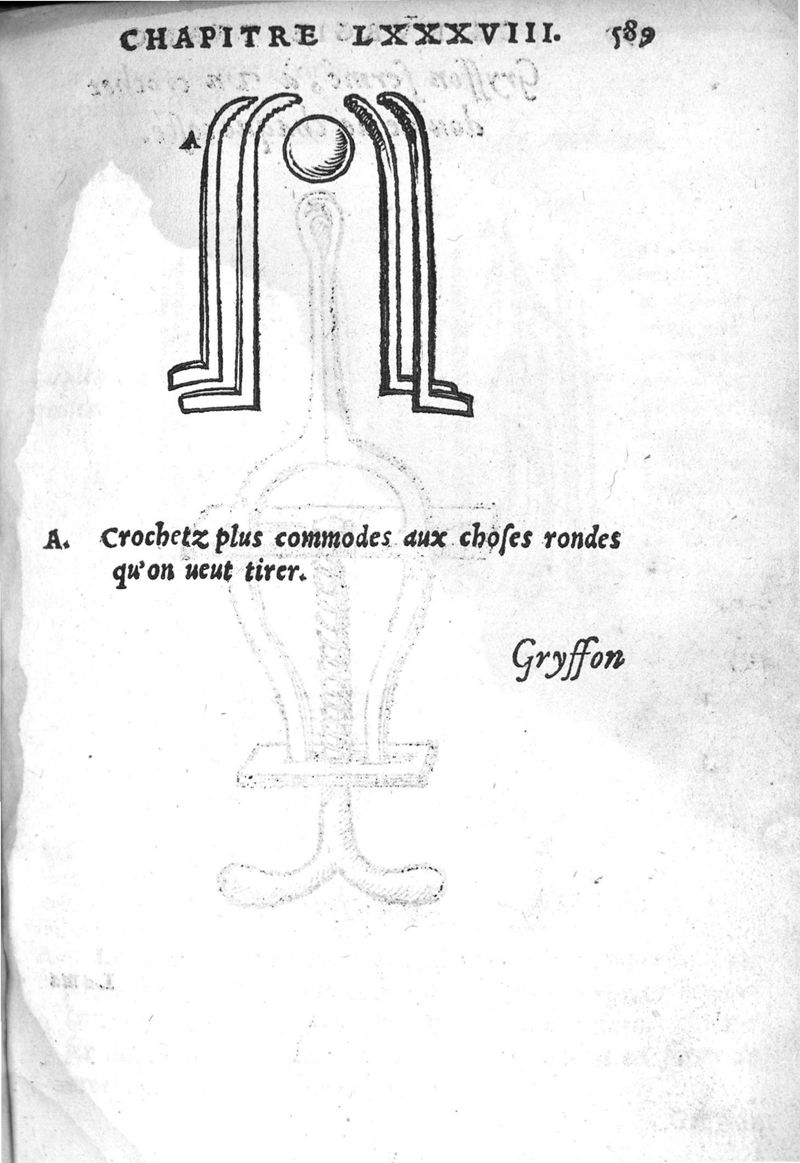 CHAPITRE LXXXVIII. 589
A
A. Crochetz plus commodes aux choſes rondes
qu'on ueut tirer.
Gryffon